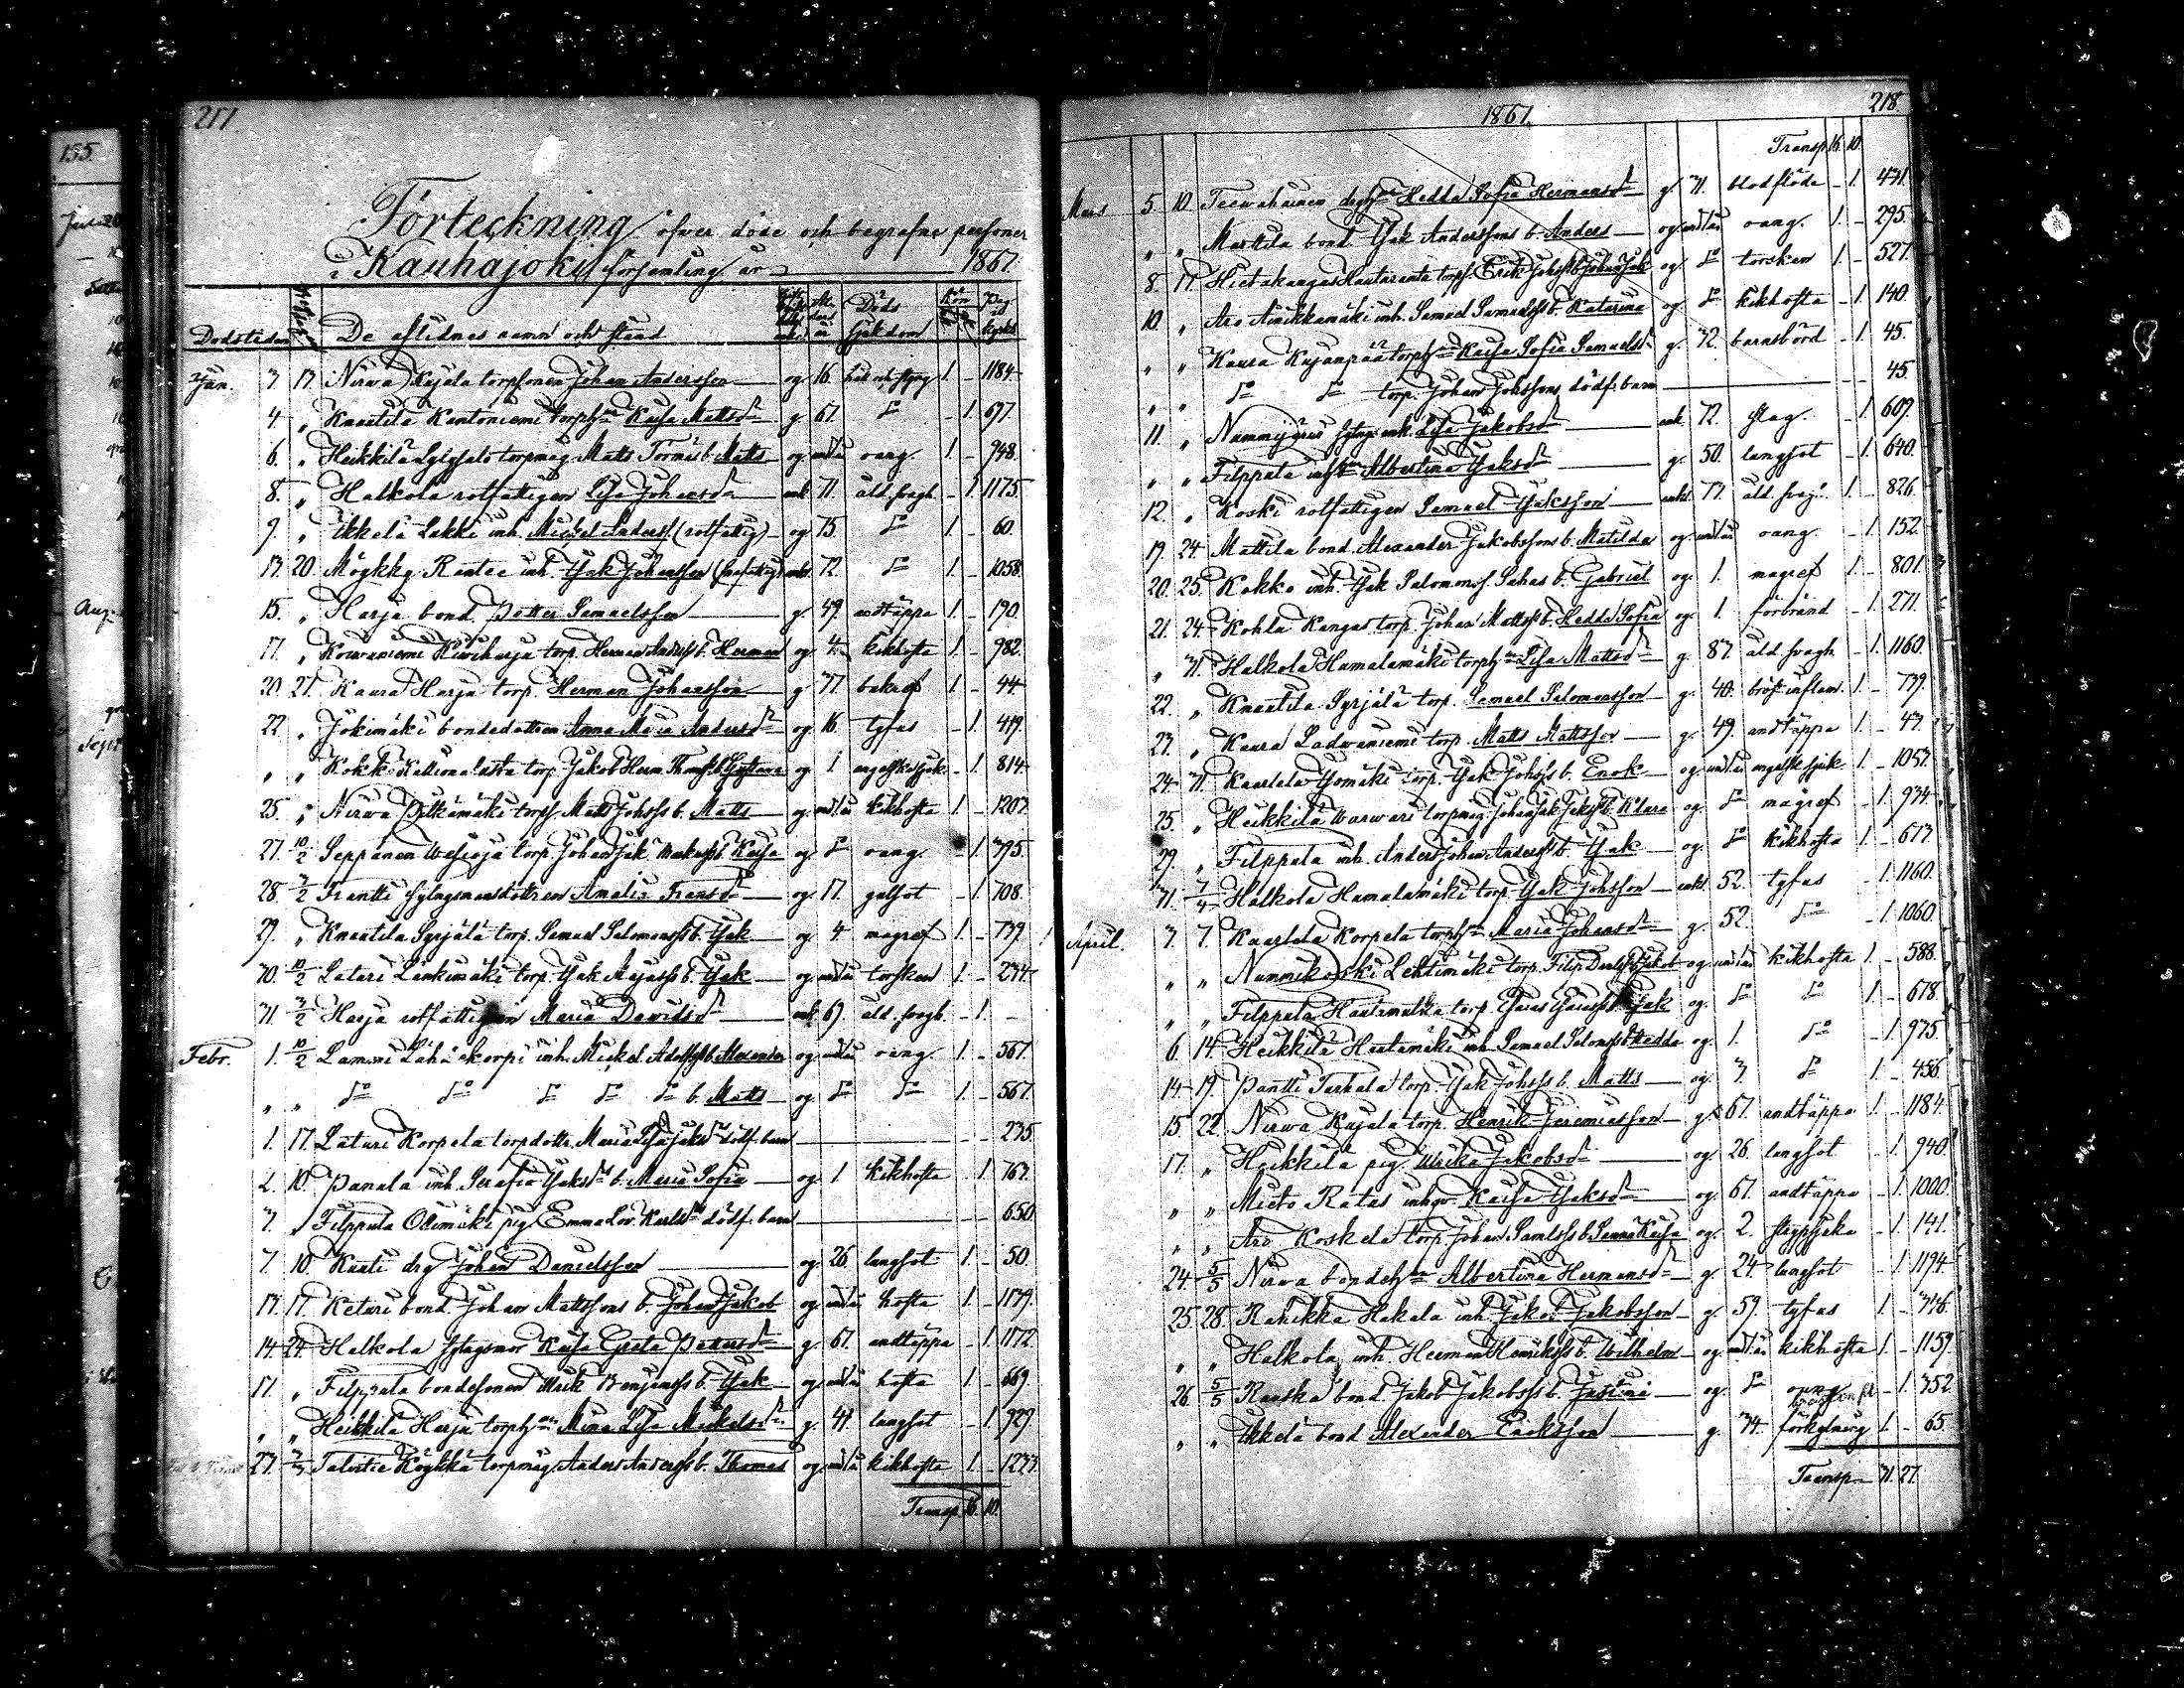 155.
217.
Förteckning öfver döde och begrafne personer
i Kauhajoki församling år 1867.
Dödstiden De aflidnes namn och stånd Döds sjukdom
Jan. 3 13. Nirwa Kujala torpsonen Johan Andersson og 16. 1. - 1184.
4. „ Knuutila Kentoniemi torph:n Kaisa Mattsd:r g. 67. d:o - 1. 697.
6. „ Heikkilä torpmåg Matts b. Matts og und.1.år oang. 1. - 948.
8. „ Halkola rotfattigen Lisa Johansd:r enk. 71. åld. svagh. - 1. 1175.
9. „ Ikkelä Lakki inh. Mickel Anderss. (rotfattig) og 75. d:o 1. - 60.
13. 20. Möykky Rantee inh. Isak Johansson enkl. 72. d:o 1. - 1058.
15. „ Harja bond. Petter Samuelsson g. 49. andtäppa 1. - 190.
17. „ Kiwiharja torp. Herman Anderss. b. Herman og 4. kikhosta 1. - 982.
20. 27. Kaura Harja torp. Herman Johansson g. 37. 1. - 44.
22. „ Jokimäki bondedottren Anna Maria Andersd:r og 16. tyfus - 1. 419.
„ „ Kokko torp. Jakob Herm. b. Gustava og 1 engelska sjuk. - 1. 814.
25. „ Nirwa torp. Matts Johss. b. Matts og. und.1.år kikhosta 1. - 1207.
27. 10/2 Seppänen Wesioja torp. Johan Isak b. Kaisa og d:o oang. - 1. 395.
28. 3/2 Frantti Amalia Fransd:r og 17. gulsot - 1. 708.
29. „ Knuutila Syrjälä torp. Samuel Salomonss. b. Isak og. 4. magref 1. - 739.
30. 10/2 Lateri Länkimäki torp. Isak b. Isak og. und.1.år torsken 1. - 234.
31. 3/2 Harja rotfattigen Maria Davidsd:r enk. 69. åld. svagh. - 1. -
Febr. 1. 10/2 Lammi Lähäkorpi inh. Mickel Adolfss. b. Alexander og. und.1.år oang. 1. - 567.
„ „ d:o d:o d:o d:o d:o b. Matts og. d:o d:o 1. - 567.
1. 17. Latari Korpela torpdottr. Maria Lisa Jakd:rs dödf. barn - - 235.
2. 10. Panula inh. Serafia Isaksd:rs b. Maria Sofia og. 1 kikhosta - 1. 763.
3. „ Filppula Ollimäki pig. Emma Lov. Karlsd:rs dödf. barn - - 650.
7. 10. Knuti drg. Johan Danielsson og. 26. lungsot 1. - 50.
13. 17. Keturi bond. Johan Mattssons b. Johan Jakob og. und.1.år hosta 1. - 1139.
14. 24. Halkola Kaisa Greta Petersd:r g. 67. andtäppa - 1. 1172.
17. „ Filppula bondesonen Ulrik Benjamss. b. Isak og. und.1.år hosta 1. - 669.
„ „ Heikkilä Harja torph:n Mina Lisa Mickelsd:r g. 41. lungsot - 1. 929.
27. 3/3 Talvitie Köykkä torpmåg Anders Anderss. b. Thomas og. und.1.år kikhosta 1. - 1233.
Transp. 16. 10.
1867.
218
Transp. 16. 10.
Mars 5. 10. Teewahainen Hedda Sofia Hermansd:r g. 31. blodflöde - 1. 471.
„ „ Marttila bond. Isak Anderssons b. Anders og. und.1.år oang. 1. - 295.
8. 17. Hietakangas Hautaranta torp. Erik Johss. b. Johan Isak og. d:o torsken 1. - 527.
10. „ Aro Ainikkamäki inh. Samuel Samuelss. b. Katarina og. d:o kikhosta - 1. 140.
„ „ Kaura Kujanpää torph:n Kaisa Sofia Samuelsd:r g. 32. barnsbörd - 1. 45.
„ „ d:o d:o torp. Johan Johssons dödf. barn - - 45.
11. „ Nummijärvi enk. Lisa Jakobsd:r enk. 72. slag. - 1. 609.
„ „ Filppula Albertina Isaksd:r g. 50. lungsot - 1. 640.
12. „ Koski rotfattigen Samuel Isaksson enkl. 77. åld. svagh. 1. - 826.
19. 24. Mattila bond. Alexander Jakobssons b. Matilda og. und.1.år oang. - 1. 152.
20. 25. Kokko inh. Isak Salomonss. b. Gabriel og. 1. magref 1. - 801.
21. 24. Kohla Kangas torp. Johan Mattss. b. Hedda Sofia og. 1. förbränd - 1. 271.
„ 31. Halkola Hamalamäki torph:n Lisa Mattsd:r g. 87. åld. svagh. - 1. 1160.
22. „ Knuutila Syrjälä torp. Samuel Salomonsson g. 40. bröstinflam. 1. - 739.
23. „ Kaura Ladwaniemi torp. Matts Mattsson g. 49. andtäppa 1. - 43.
24. 31. Kaarlela Yömäki torp. Isak Johss. b. Enok og. und.1.år engelska sjuk. 1. - 1057.
25. „ Heikkilä torpmåg Johan Isak b. Klara og. d:o magref - 1. 934.
29. „ Filppula inh. Anders Johan Anderss. b. Isak og. d:o kikhosta 1. - 673.
31. 7/4 Halkola Hamalamäki torp. Isak Johsson enkl. 52. tyfus - 1. 1160.
April. 3. 7. Kaarlela Korpela torph:n Maria Johansd:r g. 52. d:o - 1. 1060.
„ „ Nummikoski Lehtimäki torp. Filip b. Jakob og. und.1.år kikhosta 1. - 588.
„ „ Filppula torp. b. Isak og. d:o d:o 1. - 678.
6. 14. Heikkilä Hautamäki inh. Samuel Salomss. b. Hedda og. 1. d:o - 1. 975.
14. 19. Pantti Turkala torp. Isak Johss. b. Matts og. 3. d:o 1. - 456.
15. 22. Nirwa Kujala torp. Henrik Jeremiasson g. 67. andtäppa 1. - 1184.
17. „ Heikkilä pig. Ulrika Jakobsd:r og. 26. lungsot - 1. 940.
„ „ Mieto Ratus Kaisa Isaksd:r og. 67. andtäppa - 1. 1000.
„ „ Aro Koskela torp. Johan b. Sanna Kaisa og. 2. strypsjuka - 1. 141.
24. 5/5 Nirwa bondeh:n Albertina Hermansd:r g. 24. lungsot - 1. 1194.
25. 28. Rahikka Hakala inh. Jakob Jakobsson g. 59. tyfus 1. - 346.
„ „ Halkola inh. Herman Henrikss. b. Wilhelm og. und.1.år kikhosta 1. - 1159.
26. 5/5 Ranska bond. Jakob Jakobss. b. Justina og. d:o - 1. 352.
„ „ Ikkelä bond. Alexander Eriksson g. 34. förkylning 1. - 65.
Transp. 31. 27.